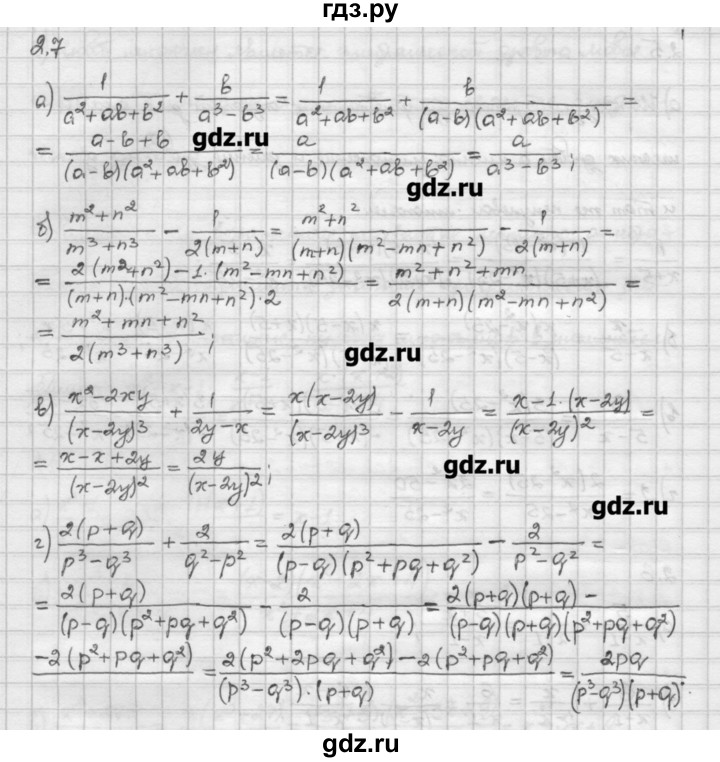 гдз.ру
2,7
а) 1/(a²+ab+b²) + b/(a³−b³) = 1/(a²+ab+b²) + b/((a−b)(a²+ab+b²)) =
= (a−b+b)/((a−b)(a²+ab+b²)) = a/((a−b)(a²+ab+b²)) = a/(a³−b³);
gdz.ru
gdz.ru
б) (m²+n²)/(m³+n³) − 1/(2(m+n)) = (m²+n²)/((m+n)(m²−mn+n²)) − 1/(2(m+n)) =
= (2(m²+n²)−1·(m²−mn+n²))/((m+n)·(m²−mn+n²)·2) = (m²+n²+mn)/(2(m+n)(m²−mn+n²)) =
= (m²+mn+n²)/(2(m³+n³));
gdz.ru
в) (x²−2xy)/(x−2y)³ + 1/(2y−x) = x(x−2y)/(x−2y)³ − 1/(x−2y) = (x−1·(x−2y))/(x−2y)² =
= (x−x+2y)/(x−2y)² = 2y/(x−2y)²;
gdz.ru
gdz.ru
г) 2(p+q)/(p³−q³) + 2/(q²−p²) = 2(p+q)/((p−q)(p²+pq+q²)) − 2/(p²−q²) =
= 2(p+q)/((p−q)(p²+pq+q²)) − 2/((p−q)(p+q)) = 2(p+q)(p+q)−/((p−q)(p+q)(p²+pq+q²))
−2(p²+pq+q²) = (2(p²+2pq+q²)−2(p²+pq+q²))/((p³−q³)·(p+q)) = 2pq/((p³−q³)(p+q)).
gdz.ru